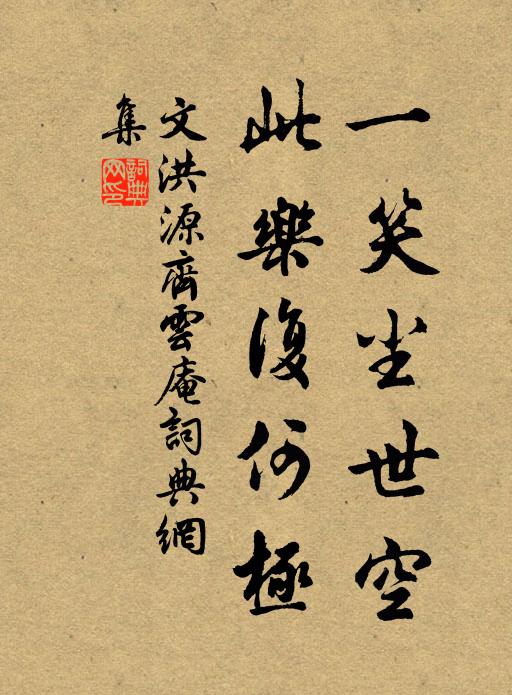 一笑尘世空
此樂復何極
文洪源齋雲庵詞典網
集
詞典
网印